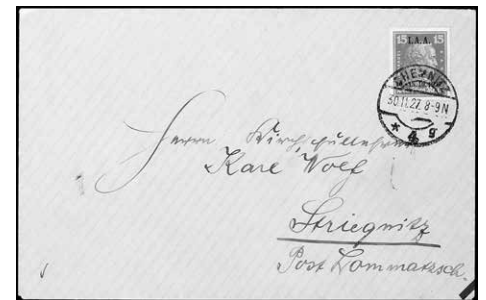 15 I.A.A. 15
CHEMNITZ
30.11.27. 8-9N
* 4 g
Herrn Kirchschullehrer
Karl Wolf
Striegnitz
Post Lommatzsch.